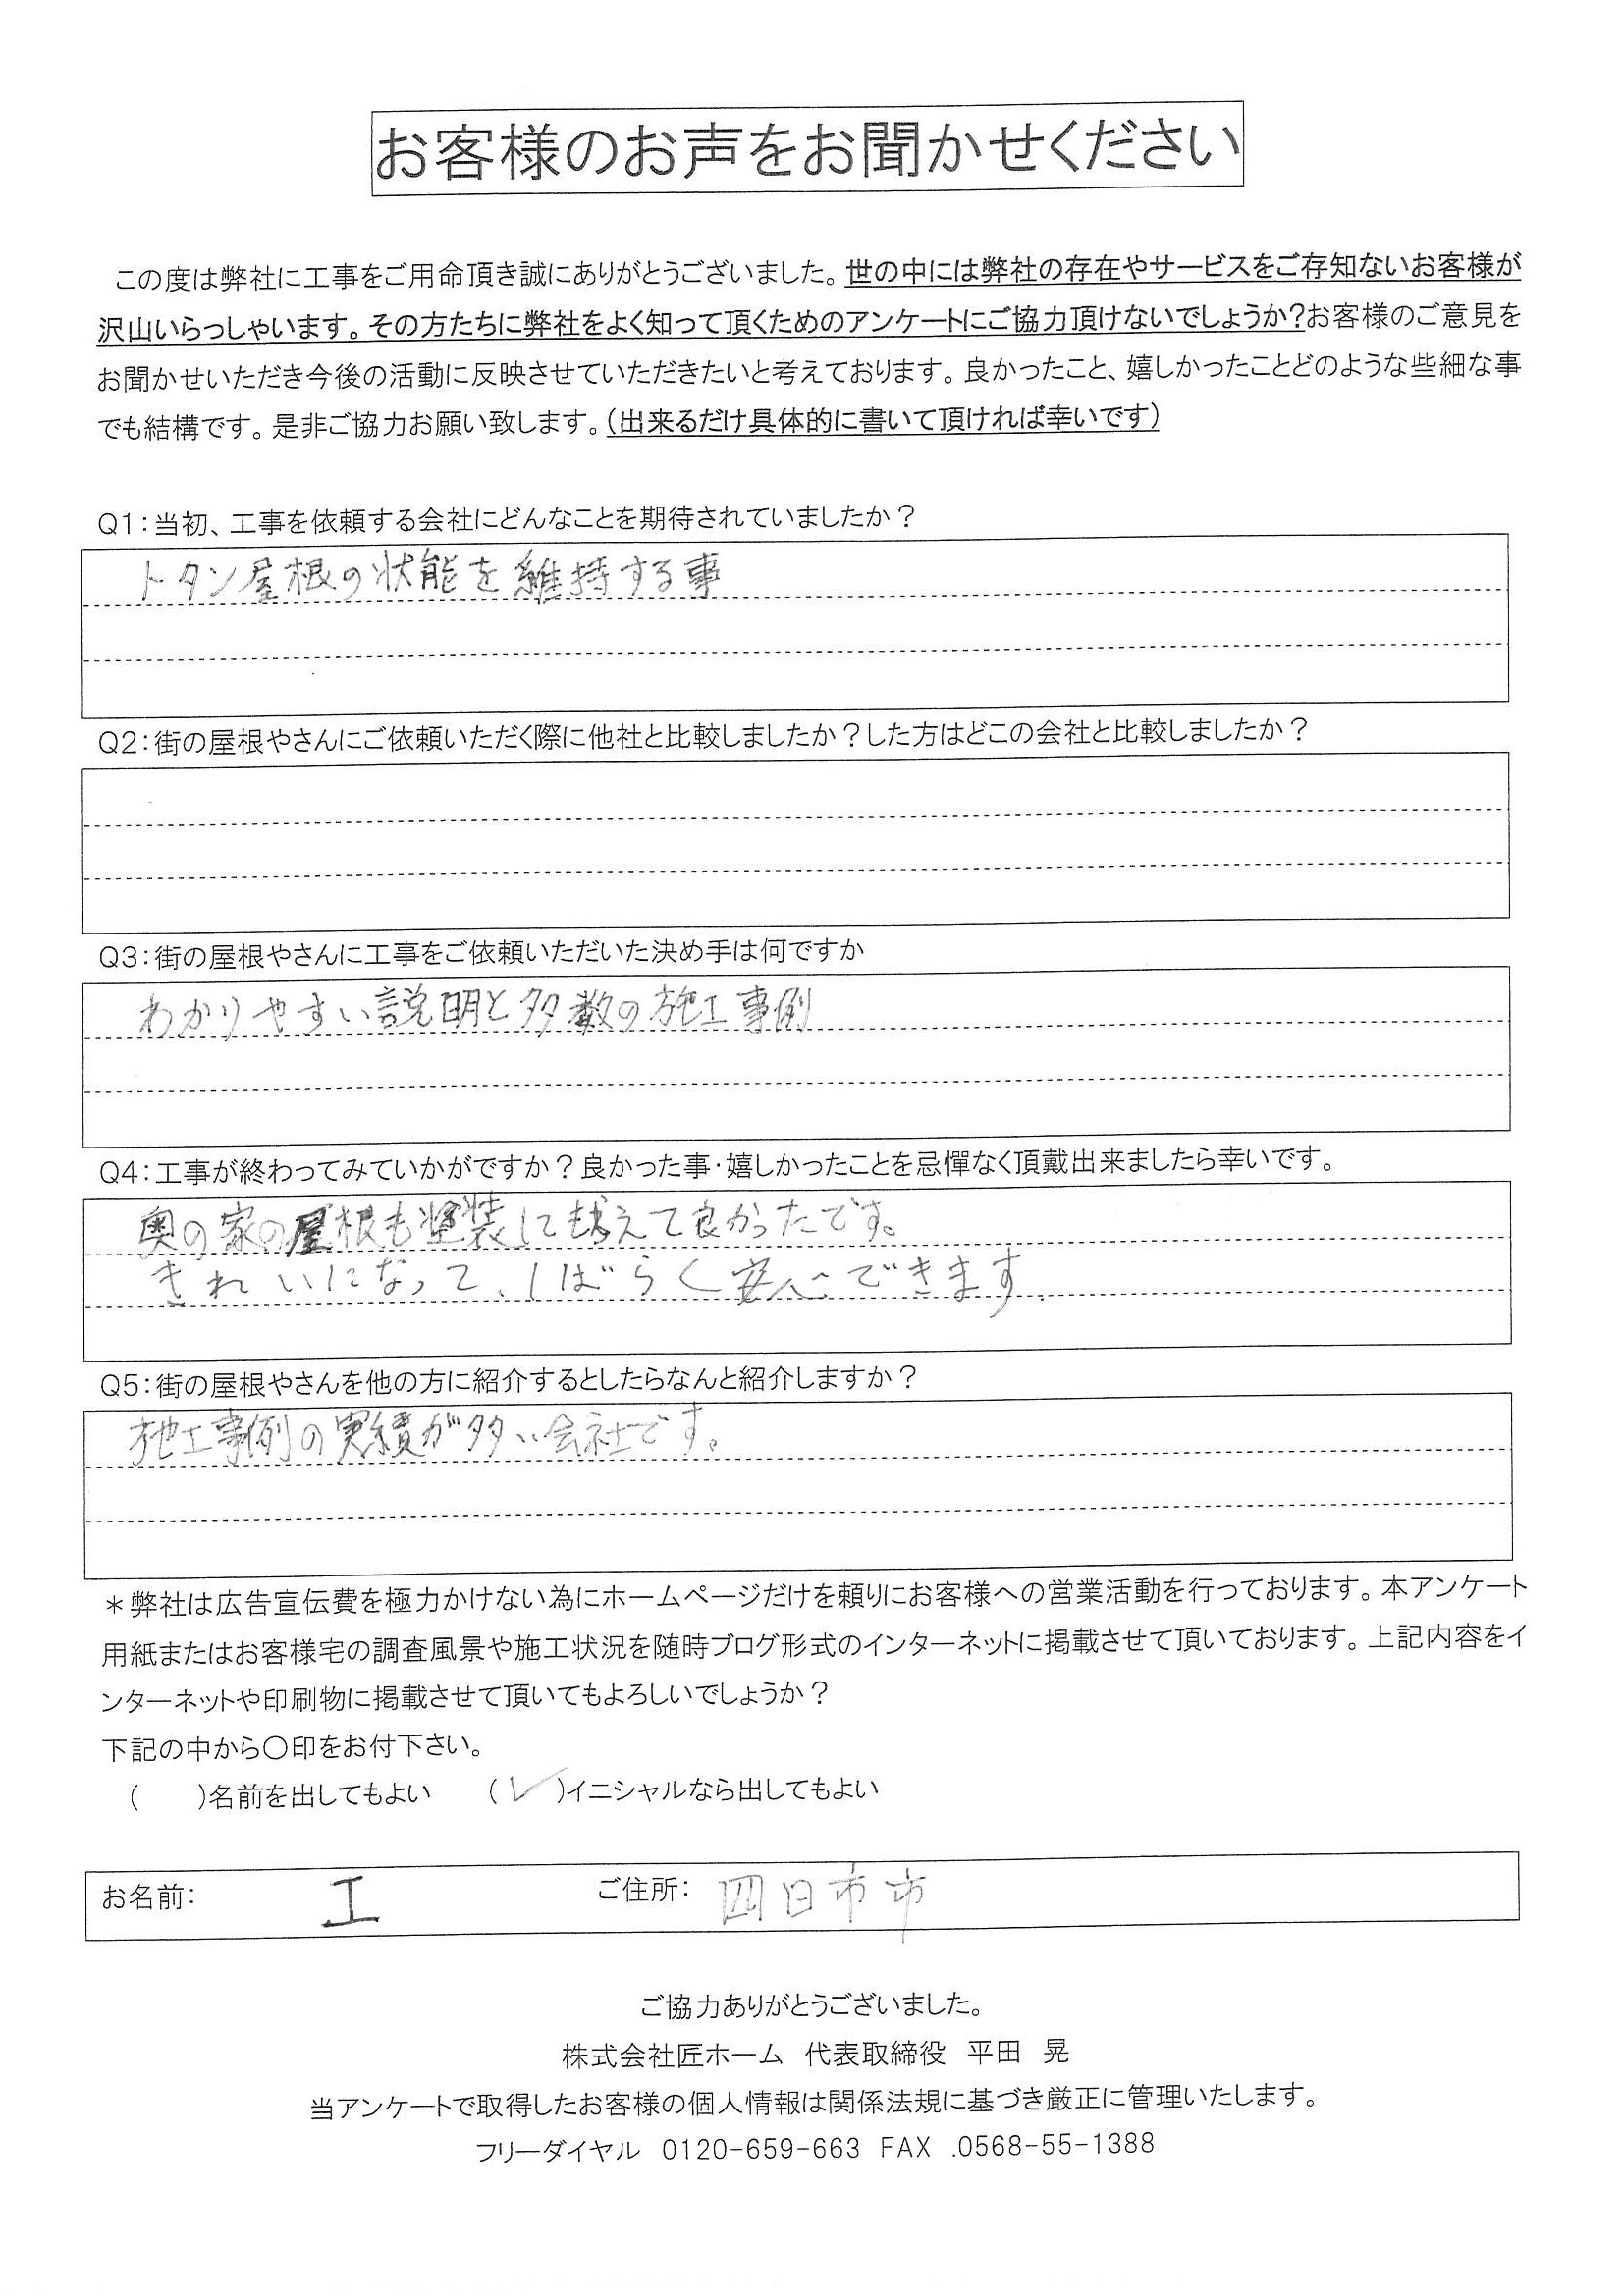 お客様のお声をお聞かせください
この度は弊社に工事をご用命頂き誠にありがとうございました。世の中には弊社の存在やサービスをご存知ないお客様が
沢山いらっしゃいます。その方たちに弊社をよく知って頂くためのアンケートにご協力頂けないでしょうか?お客様のご意見を
お聞かせいただき今後の活動に反映させていただきたいと考えております。良かったこと、嬉しかったことどのような些細な事
でも結構です。是非ご協力お願い致します。(出来るだけ具体的に書いて頂ければ幸いです)
Q1:当初、工事を依頼する会社にどんなことを期待されていましたか?
トタン屋根の状能を維持する事
Q2:街の屋根やさんにご依頼いただく際に他社と比較しましたか?した方はどこの会社と比較しましたか?
Q3:街の屋根やさんに工事をご依頼いただいた決め手は何ですか
わかりやすい説明と多数の施工事例
Q4:工事が終わってみていかがですか?良かった事・嬉しかったことを忌憚なく頂戴出来ましたら幸いです。
奥の家の屋根も塗装してもらえて良かったです。
きれいになって、しばらく安心できます.
Q5:街の屋根やさんを他の方に紹介するとしたらなんと紹介しますか?
施工事例の実績が多い会社です。
*弊社は広告宣伝費を極力かけない為にホームページだけを頼りにお客様への営業活動を行っております。本アンケート
用紙またはお客様宅の調査風景や施工状況を随時ブログ形式のインターネットに掲載させて頂いております。上記内容をイ
ンターネットや印刷物に掲載させて頂いてもよろしいでしょうか?
下記の中から〇印をお付下さい。
( )名前を出してもよい (✓)イニシャルなら出してもよい
お名前: I ご住所: 四日市市
ご協力ありがとうございました。
株式会社匠ホーム 代表取締役 平田 晃
当アンケートで取得したお客様の個人情報は関係法規に基づき厳正に管理いたします。
フリーダイヤル 0120-659-663 FAX .0568-55-1388